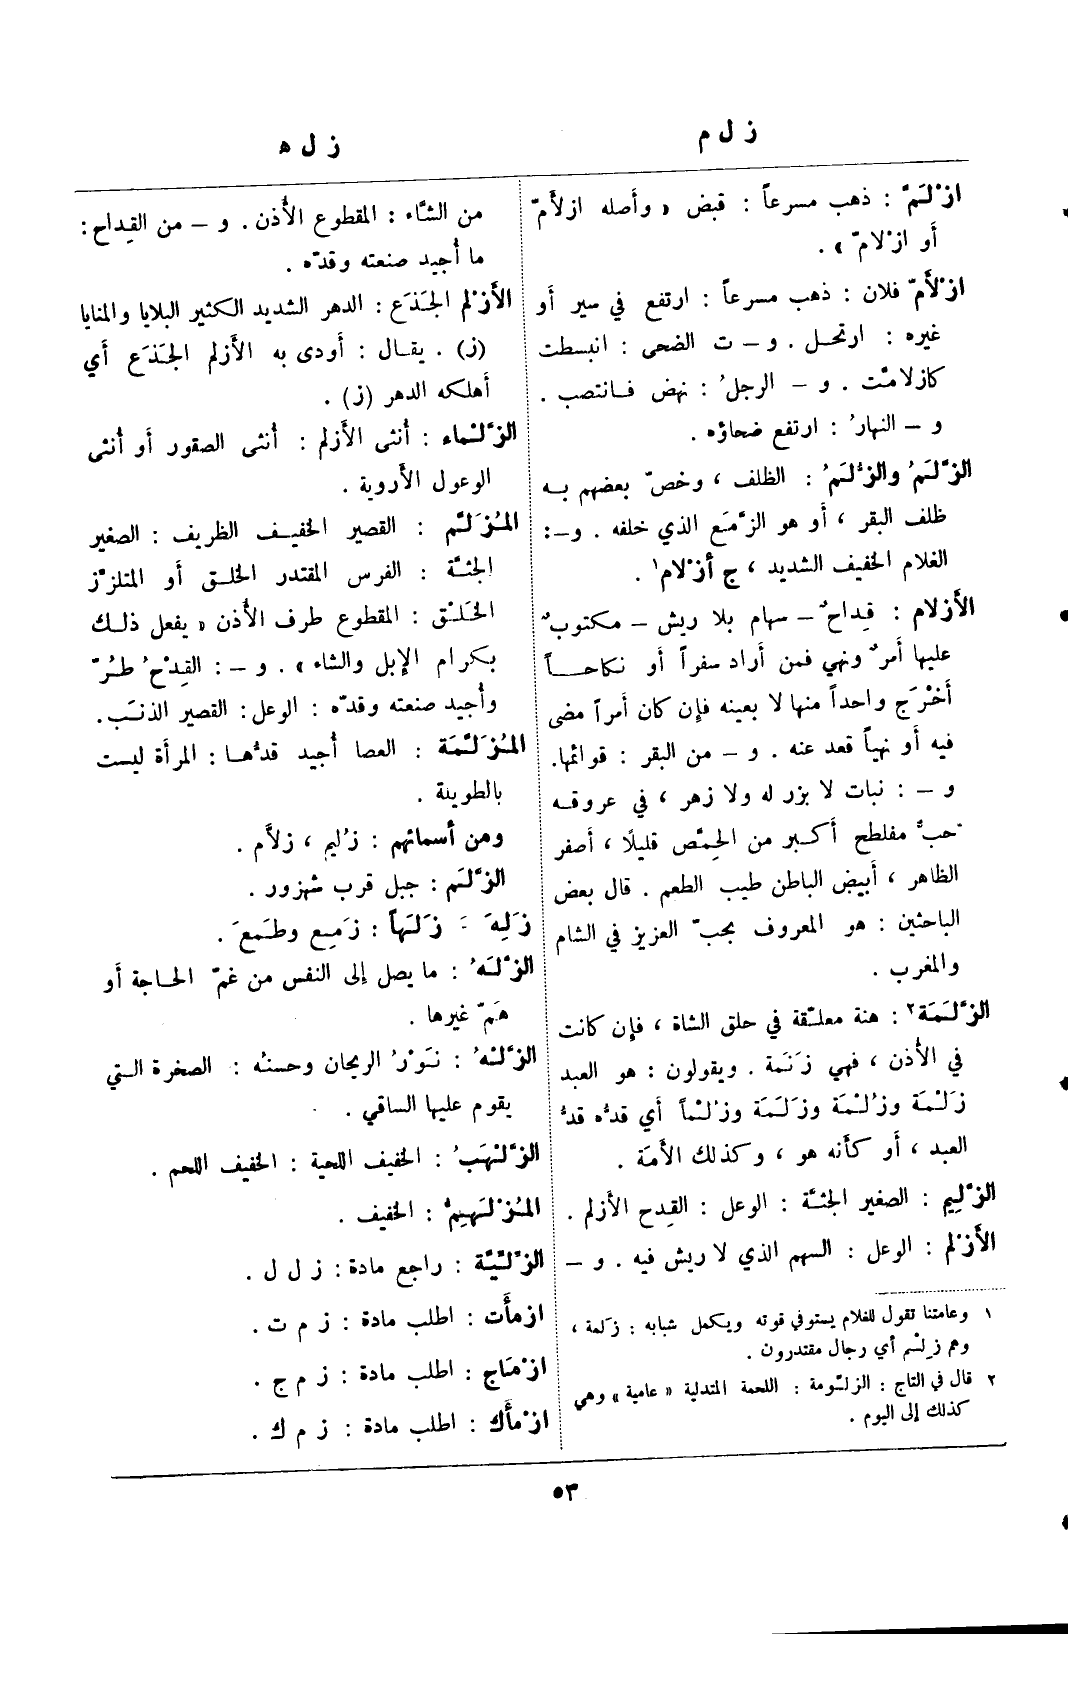 ز ل م
ز ل ه
ازْلَمَّ : ذهب مسرعاً : قبض « وأصله ازلأمّ
أو ازْلامّ » .
ازْلأَمّ فلان : ذهب مسرعاً : ارتفع في سير أو
غيره : ارتحل . و – ت الضحى : انبسطت
كازلامّت . و – الرجلُ : نهض فانتصب .
و – النهارُ : ارتفع ضحاؤه .
الزَّلَمُ والزُّلَمُ : الظلف ، وخصّ بعضهم به
ظلف البقر ، أو هو الزَّمَع الذي خلفه . و–:
الغلام الخفيف الشديد ، ج أزْلام١ .
الأزلام : قِداحٌ – سهام بلا ريش – مكتوبٌ
عليها أمرٌ ونهي فمن أراد سفراً أو نكاحاً
أخْرَج واحداً منها لا بعينه فإن كان أمراً مضى
فيه أو نهياً قعد عنه . و – من البقر : قوائمها.
و – : نبات لا بزر له ولا زهر ، في عروقه
حبٌّ مفلطح أكبر من الحِمّص قليلًا ، أصفر
الظاهر ، أبيض الباطن طيب الطعم . قال بعض
الباحثين : هو المعروف بحبّ العزيز في الشام
والمغرب .
الزَّلَمَة٢ : هنة معلّقة في حلق الشاة ، فإن كانت
في الأُذن ، فهي زَنَمة . ويقولون : هو العبد
زَلْمَة وزُلْمَة وزَلَمَة وزُلْماً أي قدُّه قدُّ
العبد ، أو كأنه هو ، وكذلك الأمَة .
الزَّلِيم : الصغير الجثّة : الوعل : القِدح الأزلم .
الأَزْلم : الوعل : السهم الذي لا ريش فيه . و –
١ وعامتنا تقول للغلام يستوفي قوته ويكمل شبابه : زَلمة ،
وهم زِلْم أي رجال مقتدرون .
٢ قال في التاج : الزلّومة : اللحمة المتدلية « عامية » وهي
كذلك إلى اليوم .
من الشاء : المقطوع الأُذن . و – من القِداح :
ما أُجيد صنعته وقدّه .
الأَزْلم الجَذَع : الدهر الشديد الكثير البلايا والمنايا
(ز) . يقال : أودى به الأزلم الجَذَع أي
أهلكه الدهر (ز) .
الزَّلْماء : أُنثى الأزلم : أنثى الصقور أو أُنثى
الوعول الأروية .
المُزَلَّم : القصير الخفيف الظريف : الصغير
الجثّة : الفرس المقتدر الخلق أو المتلزّز
الخَلْق : المقطوع طرف الأُذن « يفعل ذلك
بكرام الإبل والشاء » . و – : القِدْحُ طُرّ
وأُجيد صنعته وقدّه : الوعل : القصير الذنَب.
المُزَلَّمَة : العصا أُجيد قدُّها : المرأة ليست
بالطويلة .
ومن أسمائهم : زُليم ، زلاَّم .
الزَّلَم : جبل قرب شهزور .
زَلِهَ َ زَلَهاً : زَمِع وطَمِعَ .
الزَّلَهُ : ما يصل إلى النفس من غمّ الحاجة أو
هَمّ غيرها .
الزَّلْهُ : نَوْرُ الريحان وحسنُه : الصخرة التي
يقوم عليها الساقي .
الزَّلْهَبُ : الخفيف اللحية : الخفيف اللحم .
المُزْلَهِمُّ : الخفيف .
الزَّلِّيَّة : راجع مادة : ز ل ل .
ازمأَت : اطلب مادة : ز م ت .
ازْمَاج : اطلب مادة : ز م ج .
ازْمأَك : اطلب مادة : ز م ك .
٥٣